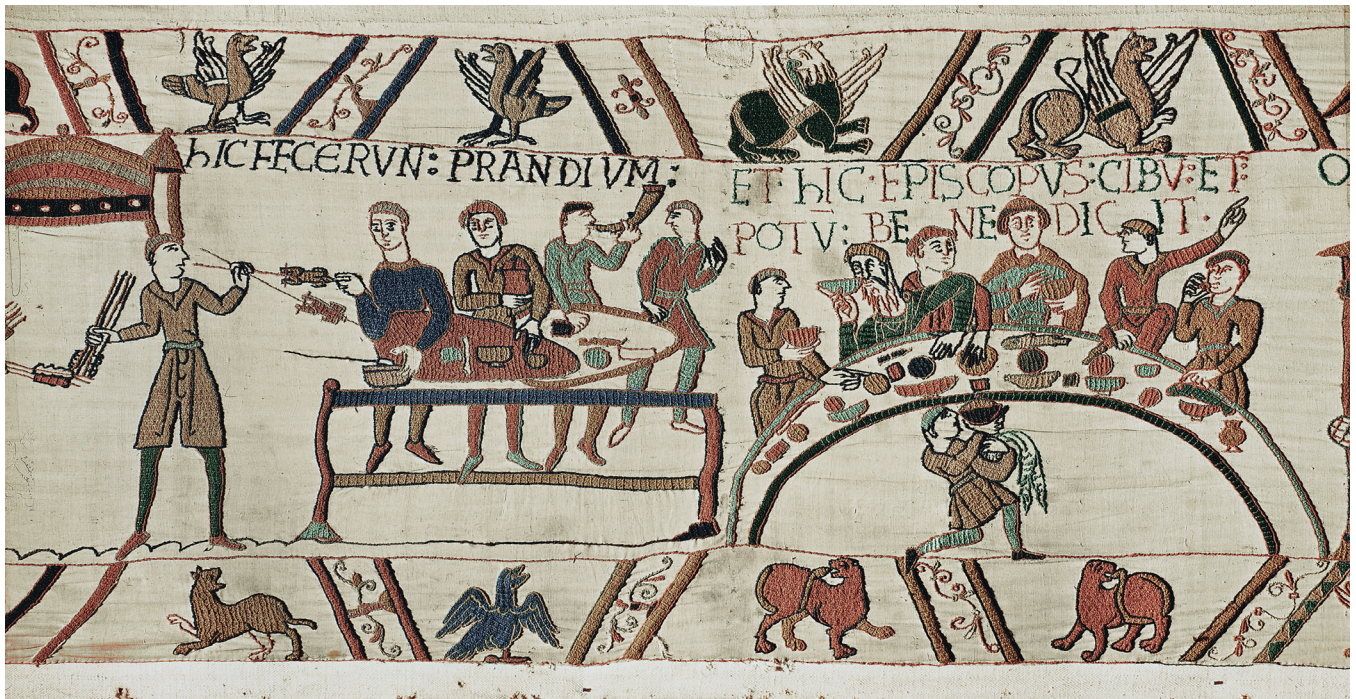 hIC FECERVN: PRANDIVM:
ET· hIC·EPISCOPVS·CIBV̄·ET·
POTV̄: BE NE DIC IT·
O